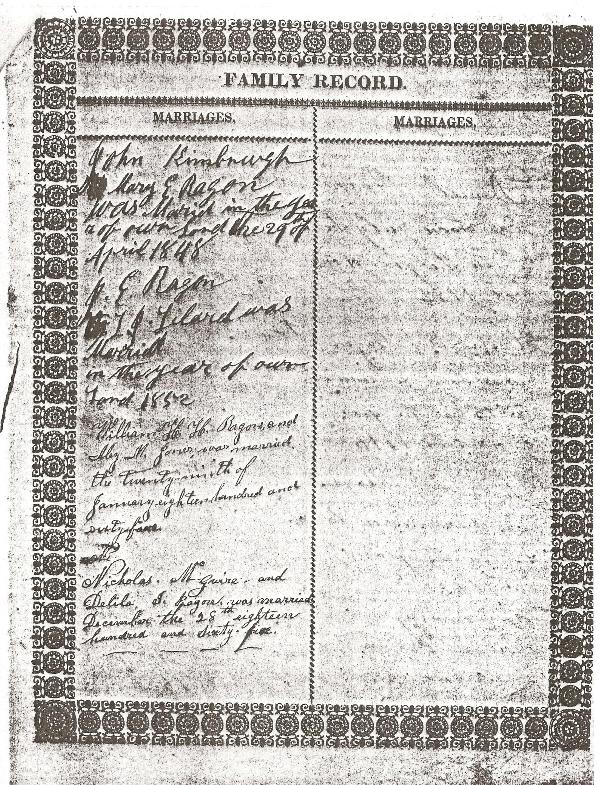 FAMILY RECORD.
MARRIAGES.
MARRIAGES.
John Kimbrough
Mary E Ragon
was Marid in the yea
r of own Lord the 29th of
April 1848
E Ragon
J. J. was
Marridt
in the year of own
Lord 1852
William H. H. Ragon, and
M. Jones, was married
the twenty ninth of
January eighteen hundred and
sixty five
Nicholas McGuire and
Delila S. Ragon, was married
December the 28th eighteen
hundred and sixty five.